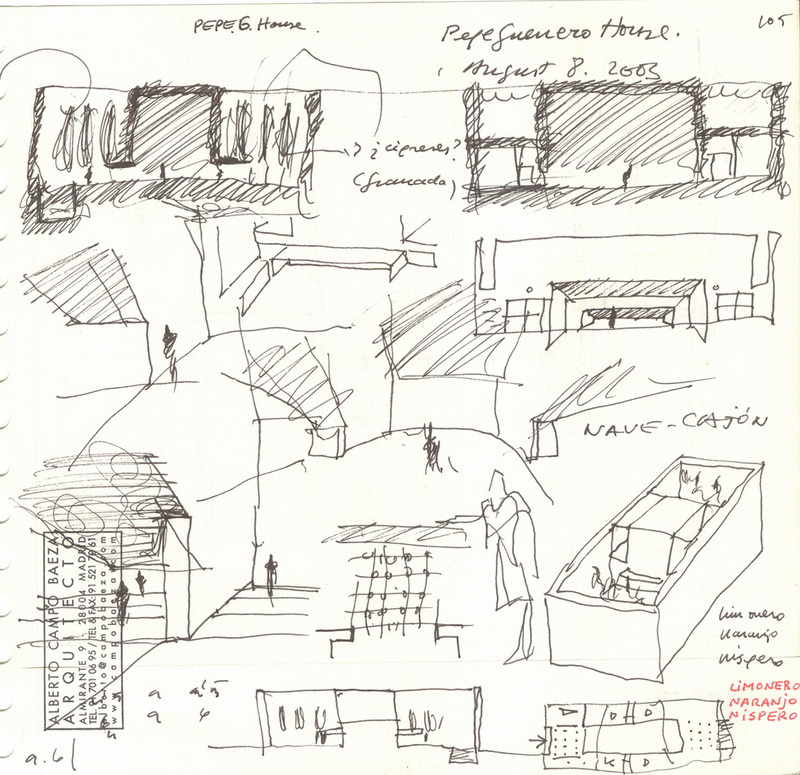 PEPE G. House.
Pepe Guerrero House.
August 8. 2003
105
? ¿cipreses?
(Granada)
NAVE-CAJÓN
limonero
naranjo
níspero
LIMONERO
NARANJO
NISPERO
ALBERTO CAMPO BAEZA
ARQUITECTO
ALMIRANTE 9 . 28004 MADRID
TEL 91 701 06 95 / TEL & FAX: 91 521 70 61
www.campobaeza.com
D D
K D